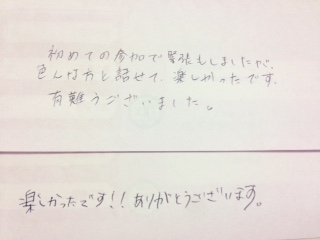 初めての参加で緊張もしましたが、
色んな方と話せて、楽しかったです。
有難うございました。
楽しかったです!!ありがとうございます。